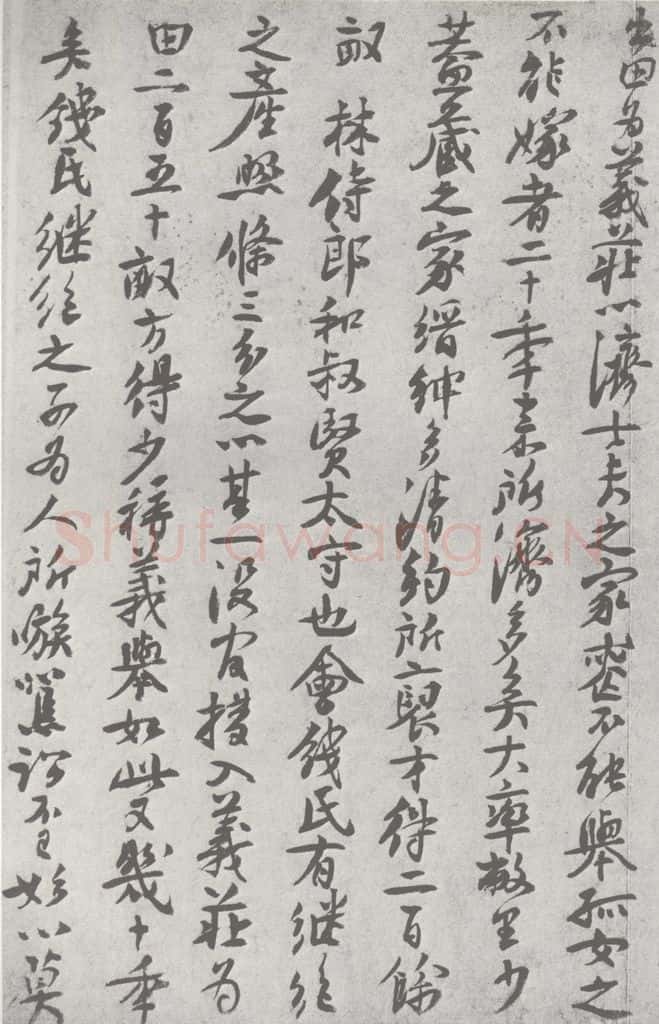 出田為義莊以濟士夫之家喪不能舉孤女之
不能嫁者二十年來所濟多矣大率敝里少
蓋藏之家縉紳多清約所裒才得二百餘
畝林侍郎和叔賢太守也會錢氏有繼絕
之產照條三分之以其一沒官撥入義莊為
田二百五十畝方得少稱義舉如此又幾十年
矣錢氏繼絕之子為人所嗾罵訟不已始以莫
Shufawang.CN